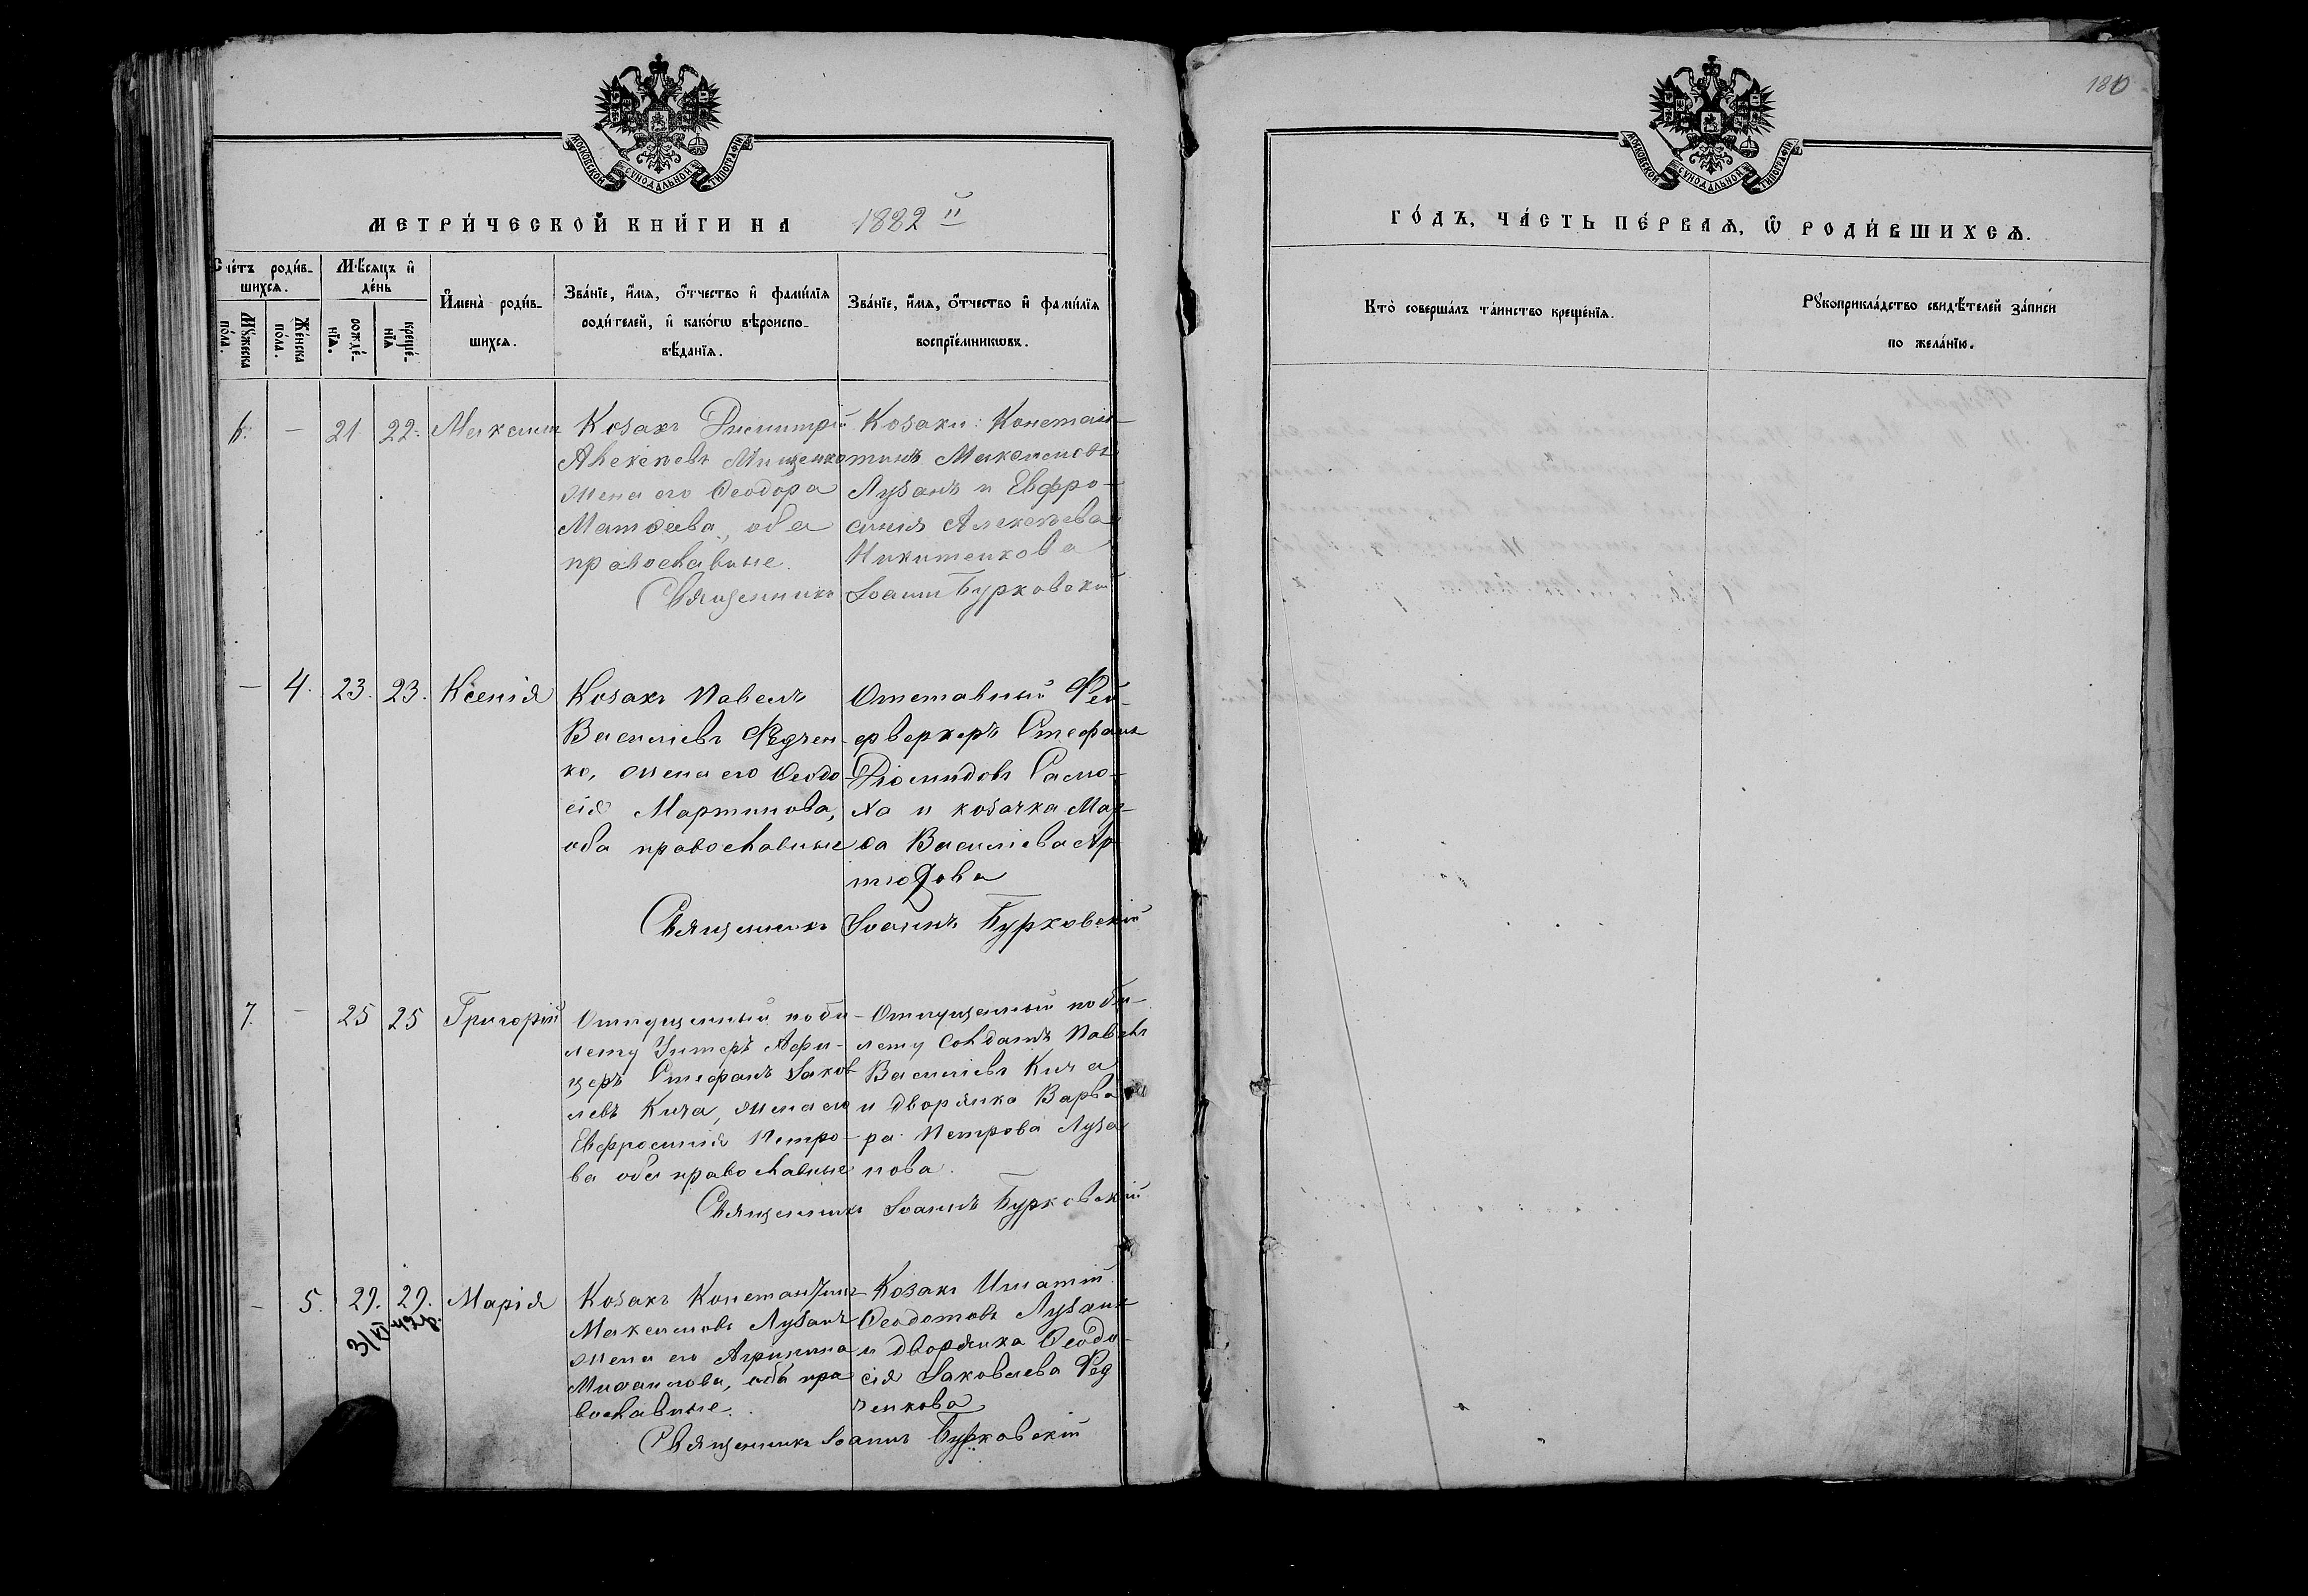 180
МОСКОВСКОЙ СУНОДАЛЬНОЙ ТИПОГРАФІИ
МОСКОВСКОЙ СУНОДАЛЬНОЙ ТИПОГРАФІИ
МЕТРИ́ЧЕСКОЙ КНИ́ГИ НА 1882 й
ГО́ДЪ, ЧА́СТЬ ПЕ́РВАѦ, Ѡ҆ РОДИ́ВШИХСѦ.
Сче́тъ роди́в-
шихсѧ.
Мꙋ́жеска
по́ла.
Же́нска
по́ла.
Мѣ́сѧцъ и҆
де́нь
рожде́-
нїѧ.
креще́-
нїѧ
И҆мена̀ роди́в-
шихсѧ.
Зва́нїе, и҆́мѧ, ѻ҆́тчество и҆ фами́лїѧ
роди́телей, и҆ како́гѡ вѣроиспо-
вѣ́данїѧ.
Зва́нїе, и҆́мѧ, ѻ҆́тчество и҆ фами́лїѧ
воспрїе́мникѡвъ.
Кто̀ соверша́лъ та́инство креще́нїѧ.
Рꙋкоприкла́дство свидѣ́телей за́писи
по жела́нїю.
6. — 21. 22. Максим
Козакъ Димитрій
Алексѣевъ Мищенко
жена его Ѳеодора
Матѳеева, оба
православные.
Козаки: Констан-
тинъ Максимовъ
Лузанъ и Евфро-
синія Алексѣева
Никитенкова
Священникъ Іоаннъ Бурковскій
— 4. 23. 23. Ксенія
Козакъ Павелъ
Василіевъ Федчен-
ко, жена его Ѳеодо-
сія Мартинова,
оба православные
Отставный Фей-
ерверкеръ Стефанъ
Діомидовъ
и козачка Мар-
ѳа Василіева
Священникъ Іоаннъ Бурковскій
7. — 25 25 Григорій
Отпущенный по би-
лету Унтеръ Афи-
церъ Стефанъ Іаков-
левъ Кича, жена его
Евфросинія Петро-
ва оба православные
Отпущенный по би-
лету Солдатъ Павелъ
Василіевъ Кича
и дворянка Варва-
ра Петрова Луза-
нова.
Священникъ Іоаннъ Бурковскій
— 5. 29. 29. Марія
Козакъ Константинъ
Максимовъ Лузанъ
жена его Агрипина
Михаилова, оба пра
вославные.
Козакъ Игнатій
Ѳеодотовъ Лузанъ
и дворянка Ѳеодо-
сія Іаковлева Фед
ченкова
Священникъ Іоаннъ Бурковскій